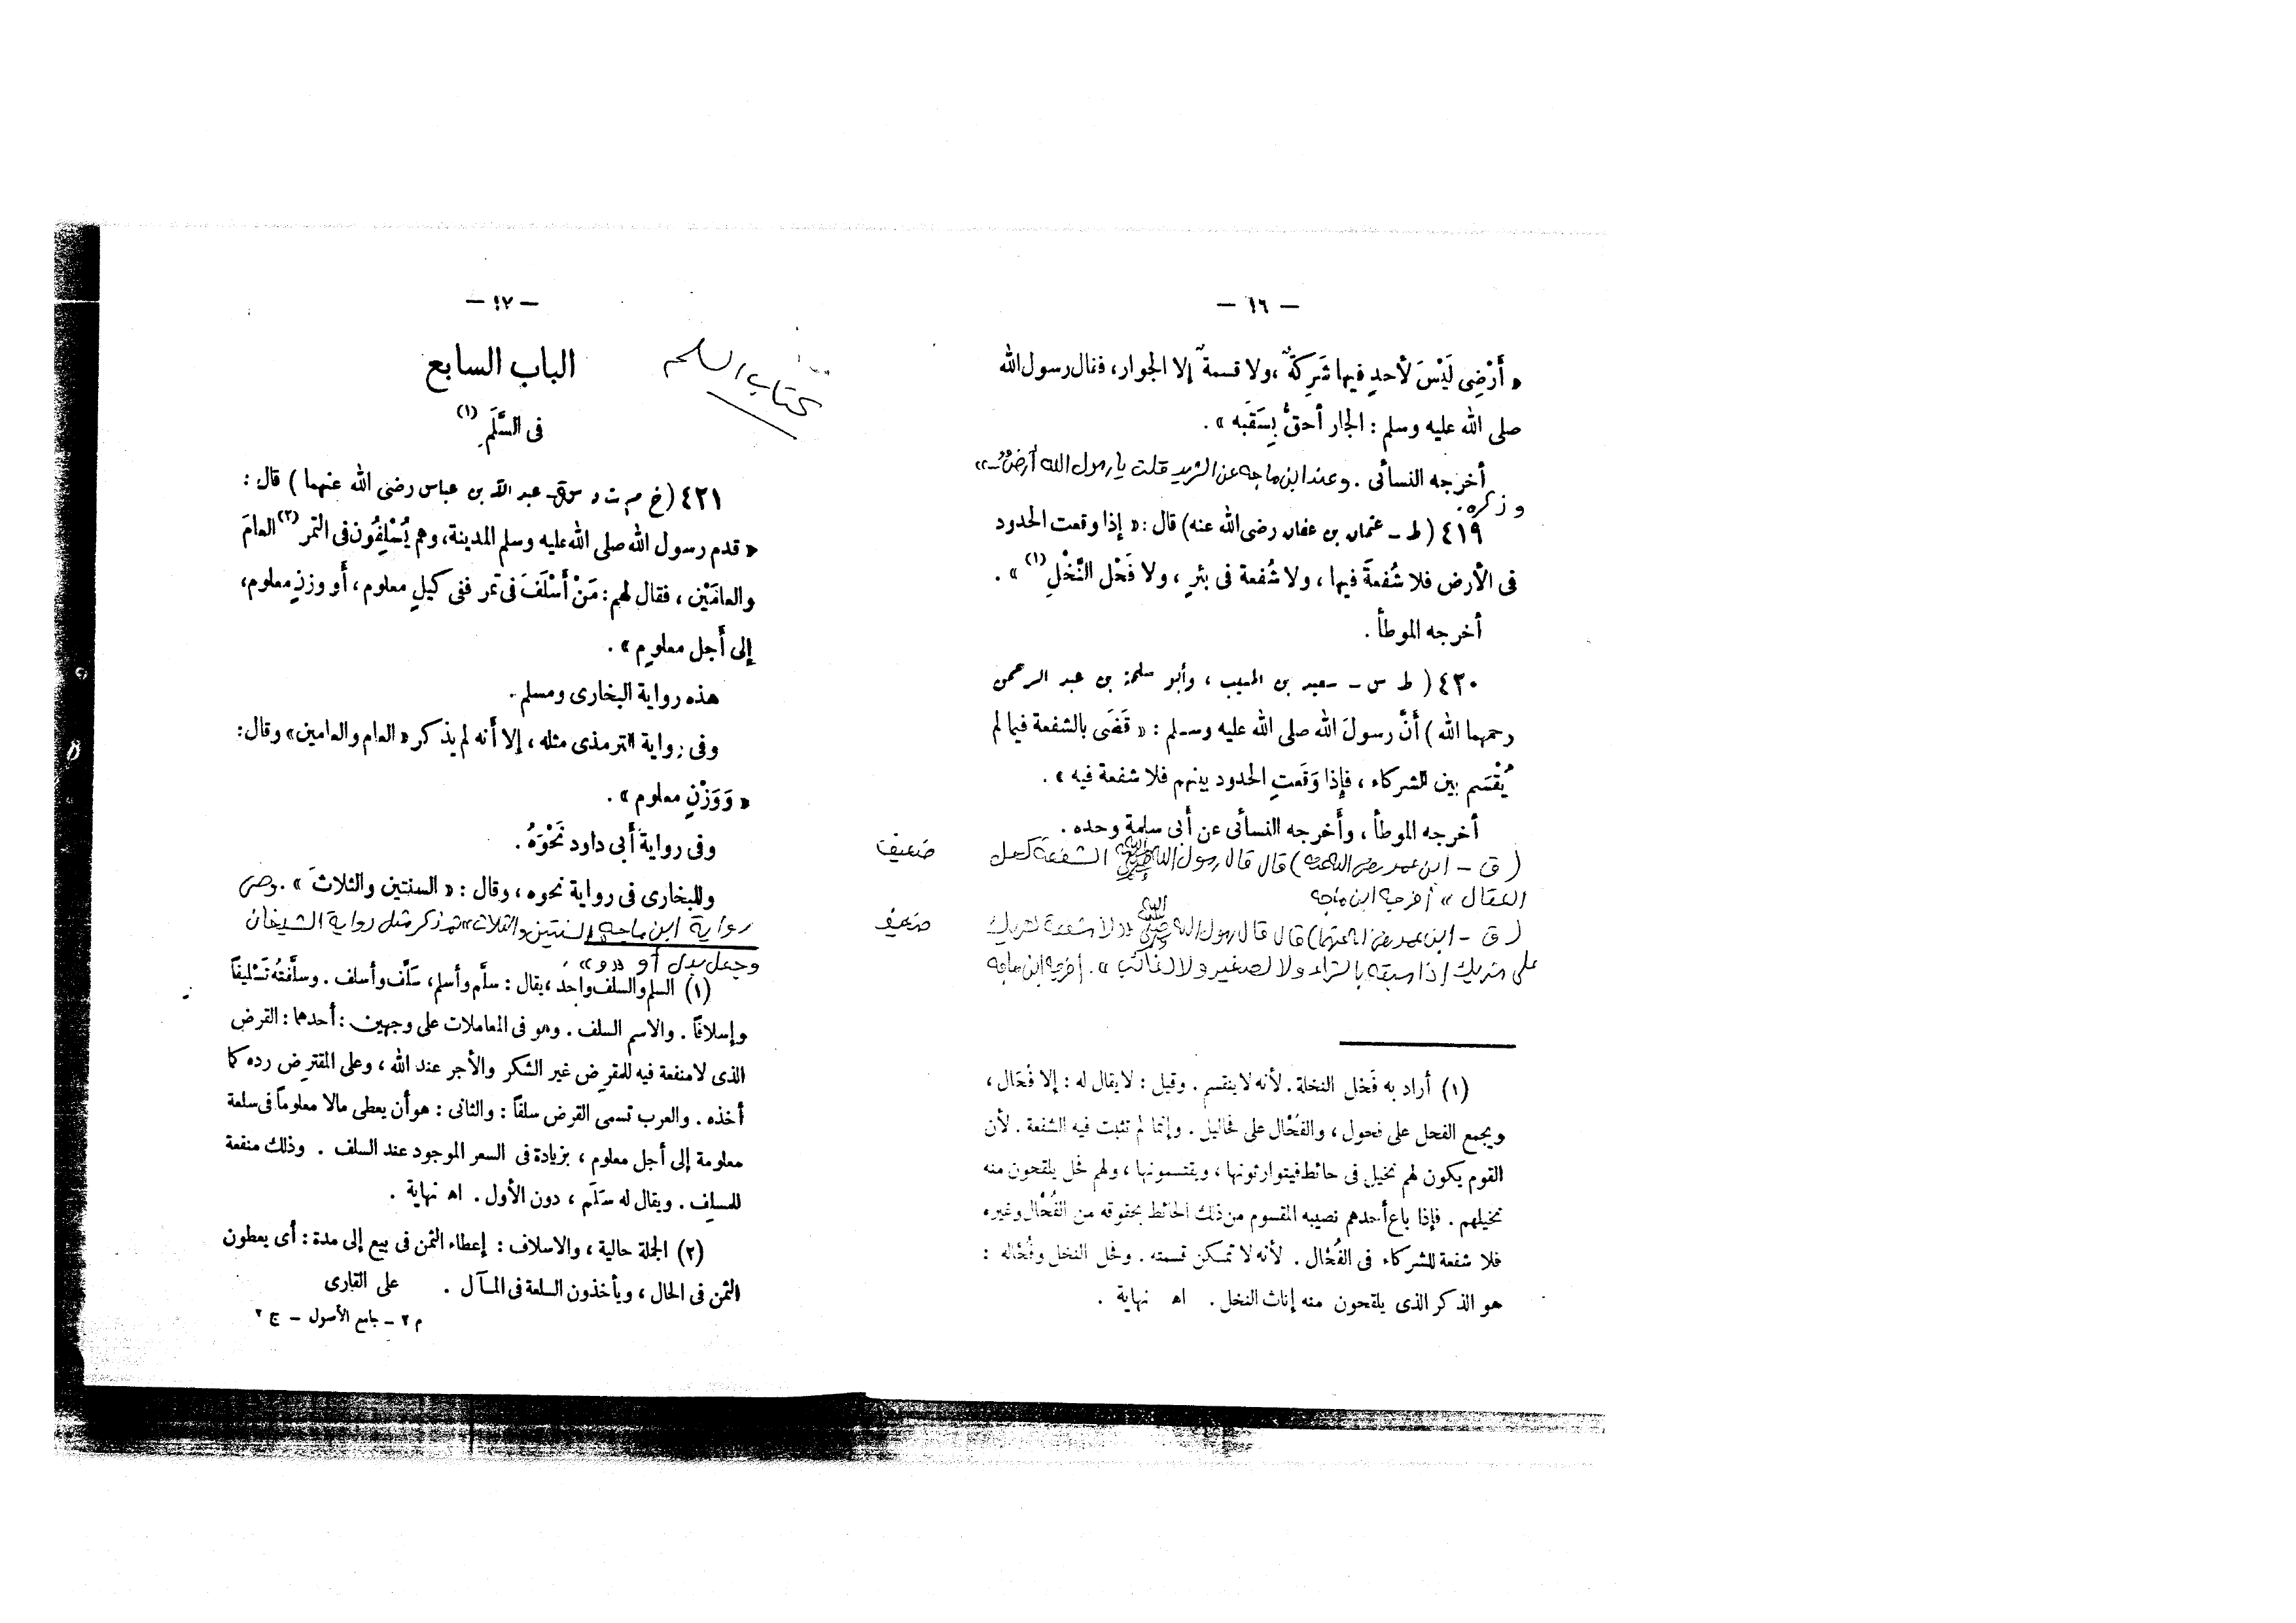 — ١٦ —
« أَرْضِى لَيْسَ لأحدٍ فيها شَرِكَةٌ ، ولا قسمةٌ إلا الجوار ، فقال رسول الله
صلى الله عليه وسلم : الجار أحقُّ بِسَقَبه » .
أخرجه النسائى . وعند ابن ماجه عن الشريد قلت يا رسول الله أرضٌ »
وذكره .
٤١٩ ( ط ــ عثمان بن عفان رضى الله عنه ) قال : « إذا وقعت الحدود
فى الأرض فلا شُفعةَ فيها ، ولا شُفعة فى بئرٍ ، ولا فَحْل النَّخْلِ (١) » .
أخرجه الموطأ .
٤٢٠ ( ط س ــ سعيد بن المسيب ، وأبو سلمة بن عبد الرحمن
رحمهما الله ) أنَّ رسولَ الله صلى الله عليه وسلم : « قَضَى بالشفعة فيما لم
يُقْسَم بين الشركاء ، فإذا وَقَعتِ الحدود بينهم فلا شفعة فيه » .
أخرجه الموطأ ، وأخرجه النسائى عن أبى سلمة وحده .
( ق – ابن عمر رضى الله عنه ) قال قال رسول الله ﷺ الشفعة كحل ضعيف
العقال » أخرجه ابن ماجه
( ق – ابن عمر رضى الله عنهما ) قال قال رسول الله ﷺ « لا شفعة لشريك ضعيف
على شريك إذا سبقه بالشراء ولا لصغير ولا لغائب » . أخرجه ابن ماجه
(١) أراد به فَحْل النخلة . لأنه لا ينقسم . وقيل : لا يقال له : إلا فُحّال ،
ويجمع الفحل على فحول ، والفُحَّال على فحاليل . وإنما لم تثبت فيه الشفعة . لأن
القوم يكون لهم نخيل فى حائط فيتوارثونها ، ويقتسمونها ، ولهم فحل يلقحون منه
نخيلهم . فإذا باع أحدهم نصيبه المقسوم من ذلك الحائط بحقوقه من الفُحَّال وغيره
فلا شفعة للشركاء فى الفُحَّال . لأنه لا تمكن قسمته . وفحل النخل وفُحَّاله :
هو الذكر الذى يلقحون منه إناث النخل . اه نهاية .
— ١٧ —
كتاب السلم
الباب السابع
فى السَّلَمِ (١)
٤٢١ ( خ م ت د س ق ــ عبد الله بن عباس رضى الله عنهما ) قال :
« قدم رسول الله صلى الله عليه وسلم المدينة ، وهم يُسْلِفُون فى التمر (٢) العامَ
والعامَيْن ، فقال لهم : مَنْ أَسْلَفَ فى تمر ففى كيلٍ معلوم ، أو وزنٍ معلوم ،
إلى أَجل معلومٍ » .
هذه رواية البخارى ومسلم .
وفى رواية الترمذى مثله ، إلا أنه لم يذكر « العام والعامين » وقال :
« وَوَزْنٍ معلوم » .
وفى رواية أبى داود نَحْوَهُ .
وللبخارى فى رواية نحوه ، وقال : « السنتين والثلاثَ » . وفى
رواية ابن ماجه السنتين والثلاث » ثم ذكر مثل رواية الشيخان
وجعل بدل أو « و » .
(١) السلم والسلف واحد ، يقال : سلَّم وأسلم ، سَلَّف وأسلف . وسلَّفتُه تَسْليفاً
وإسلافاً . والاسم السلف . وهو فى المعاملات على وجهين : أحدهما : القرض
الذى لا منفعة فيه للمقرِض غير الشكر والأجر عند الله ، وعلى المقترِض رده كما
أخذه . والعرب تسمى القرض سلفاً : والثانى : هو أن يعطى مالا معلوماً فى سلعة
معلومة إلى أجل معلوم ، بزيادة فى السعر الموجود عند السلف . وذلك منفعة
للمسلِف . ويقال له سَلَم ، دون الأول . اه نهاية .
(٢) الجملة حالية ، والاسلاف : إعطاء الثمن فى بيع إلى مدة : أى يعطون
الثمن فى الحال ، ويأخذون السلعة فى المآل . على القارى
م ٢ ــ جامع الأصول ــ ج ٢